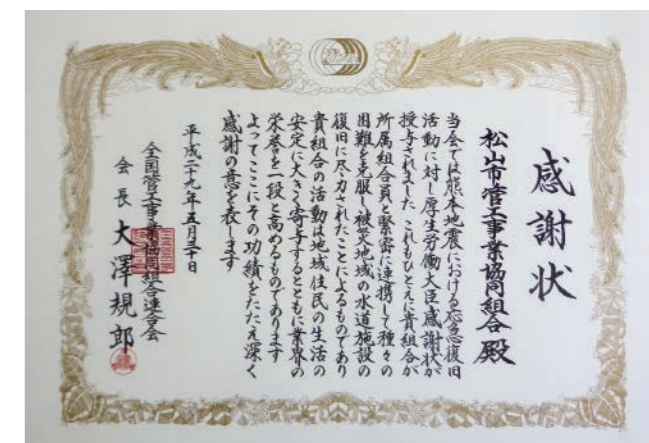 感謝状
松山市管工事業協同組合殿
当会では熊本地震における応急復旧
活動に対し厚生労働大臣感謝状が
授与されました これもひとえに貴組合が
所属組合員と緊密に連携して種々の
困難を克服し被災地域の水道施設の
復旧に尽力されたことによるものであり
貴組合の活動は地域住民の生活の
安定に大きく寄与するとともに業界の
栄誉を一段と高めるものであります
よってここにその功績をたたえ深く
感謝の意を表します
平成二十九年五月三十日
全国管工事業協同組合連合会
会長 大澤規郎